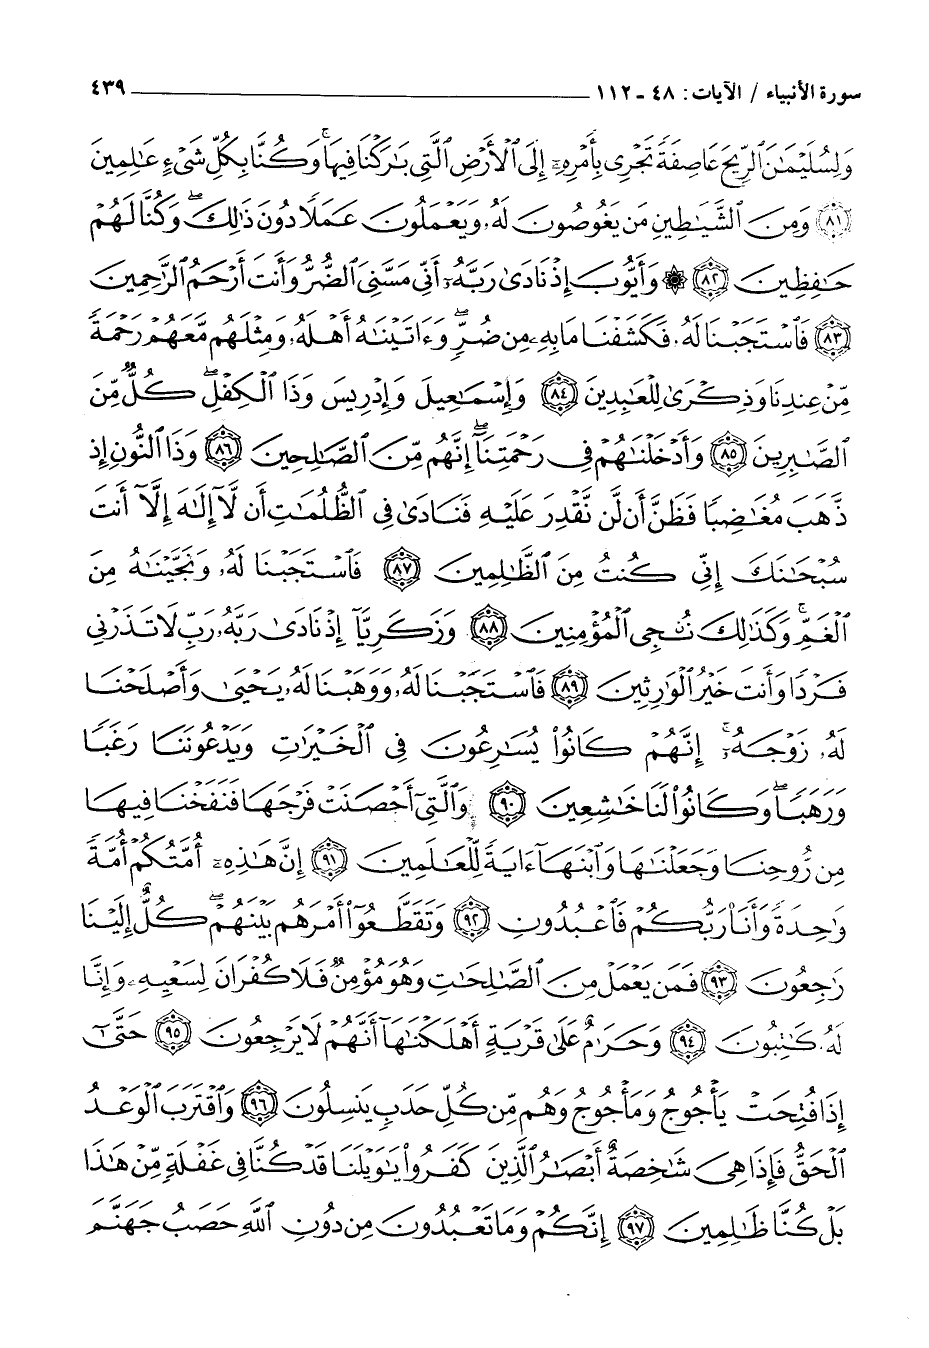 سورة الأنبياء / الآيات: ٤٨ - ١١٢ ٤٣٩
وَلِسُلَيْمَٰنَ ٱلرِّيحَ عَاصِفَةً تَجْرِى بِأَمْرِهِۦٓ إِلَى ٱلْأَرْضِ ٱلَّتِى بَٰرَكْنَا فِيهَا ۚ وَكُنَّا بِكُلِّ شَىْءٍ عَٰلِمِينَ
﴿٨١﴾ وَمِنَ ٱلشَّيَٰطِينِ مَن يَغُوصُونَ لَهُۥ وَيَعْمَلُونَ عَمَلًا دُونَ ذَٰلِكَ ۖ وَكُنَّا لَهُمْ
حَٰفِظِينَ ﴿٨٢﴾ ۞ وَأَيُّوبَ إِذْ نَادَىٰ رَبَّهُۥٓ أَنِّى مَسَّنِىَ ٱلضُّرُّ وَأَنتَ أَرْحَمُ ٱلرَّٰحِمِينَ
﴿٨٣﴾ فَٱسْتَجَبْنَا لَهُۥ فَكَشَفْنَا مَا بِهِۦ مِن ضُرٍّ ۖ وَءَاتَيْنَٰهُ أَهْلَهُۥ وَمِثْلَهُم مَّعَهُمْ رَحْمَةً
مِّنْ عِندِنَا وَذِكْرَىٰ لِلْعَٰبِدِينَ ﴿٨٤﴾ وَإِسْمَٰعِيلَ وَإِدْرِيسَ وَذَا ٱلْكِفْلِ ۖ كُلٌّ مِّنَ
ٱلصَّٰبِرِينَ ﴿٨٥﴾ وَأَدْخَلْنَٰهُمْ فِى رَحْمَتِنَآ ۖ إِنَّهُم مِّنَ ٱلصَّٰلِحِينَ ﴿٨٦﴾ وَذَا ٱلنُّونِ إِذ
ذَّهَبَ مُغَٰضِبًا فَظَنَّ أَن لَّن نَّقْدِرَ عَلَيْهِ فَنَادَىٰ فِى ٱلظُّلُمَٰتِ أَن لَّآ إِلَٰهَ إِلَّآ أَنتَ
سُبْحَٰنَكَ إِنِّى كُنتُ مِنَ ٱلظَّٰلِمِينَ ﴿٨٧﴾ فَٱسْتَجَبْنَا لَهُۥ وَنَجَّيْنَٰهُ مِنَ
ٱلْغَمِّ ۚ وَكَذَٰلِكَ نُۨجِى ٱلْمُؤْمِنِينَ ﴿٨٨﴾ وَزَكَرِيَّآ إِذْ نَادَىٰ رَبَّهُۥ رَبِّ لَا تَذَرْنِى
فَرْدًا وَأَنتَ خَيْرُ ٱلْوَٰرِثِينَ ﴿٨٩﴾ فَٱسْتَجَبْنَا لَهُۥ وَوَهَبْنَا لَهُۥ يَحْيَىٰ وَأَصْلَحْنَا
لَهُۥ زَوْجَهُۥٓ ۚ إِنَّهُمْ كَانُوا۟ يُسَٰرِعُونَ فِى ٱلْخَيْرَٰتِ وَيَدْعُونَنَا رَغَبًا
وَرَهَبًا ۖ وَكَانُوا۟ لَنَا خَٰشِعِينَ ﴿٩٠﴾ وَٱلَّتِىٓ أَحْصَنَتْ فَرْجَهَا فَنَفَخْنَا فِيهَا
مِن رُّوحِنَا وَجَعَلْنَٰهَا وَٱبْنَهَآ ءَايَةً لِّلْعَٰلَمِينَ ﴿٩١﴾ إِنَّ هَٰذِهِۦٓ أُمَّتُكُمْ أُمَّةً
وَٰحِدَةً وَأَنَا۠ رَبُّكُمْ فَٱعْبُدُونِ ﴿٩٢﴾ وَتَقَطَّعُوٓا۟ أَمْرَهُم بَيْنَهُمْ ۖ كُلٌّ إِلَيْنَا
رَٰجِعُونَ ﴿٩٣﴾ فَمَن يَعْمَلْ مِنَ ٱلصَّٰلِحَٰتِ وَهُوَ مُؤْمِنٌ فَلَا كُفْرَانَ لِسَعْيِهِۦ وَإِنَّا
لَهُۥ كَٰتِبُونَ ﴿٩٤﴾ وَحَرَٰمٌ عَلَىٰ قَرْيَةٍ أَهْلَكْنَٰهَآ أَنَّهُمْ لَا يَرْجِعُونَ ﴿٩٥﴾ حَتَّىٰٓ
إِذَا فُتِحَتْ يَأْجُوجُ وَمَأْجُوجُ وَهُم مِّن كُلِّ حَدَبٍ يَنسِلُونَ ﴿٩٦﴾ وَٱقْتَرَبَ ٱلْوَعْدُ
ٱلْحَقُّ فَإِذَا هِىَ شَٰخِصَةٌ أَبْصَٰرُ ٱلَّذِينَ كَفَرُوا۟ يَٰوَيْلَنَا قَدْ كُنَّا فِى غَفْلَةٍ مِّنْ هَٰذَا
بَلْ كُنَّا ظَٰلِمِينَ ﴿٩٧﴾ إِنَّكُمْ وَمَا تَعْبُدُونَ مِن دُونِ ٱللَّهِ حَصَبُ جَهَنَّمَ